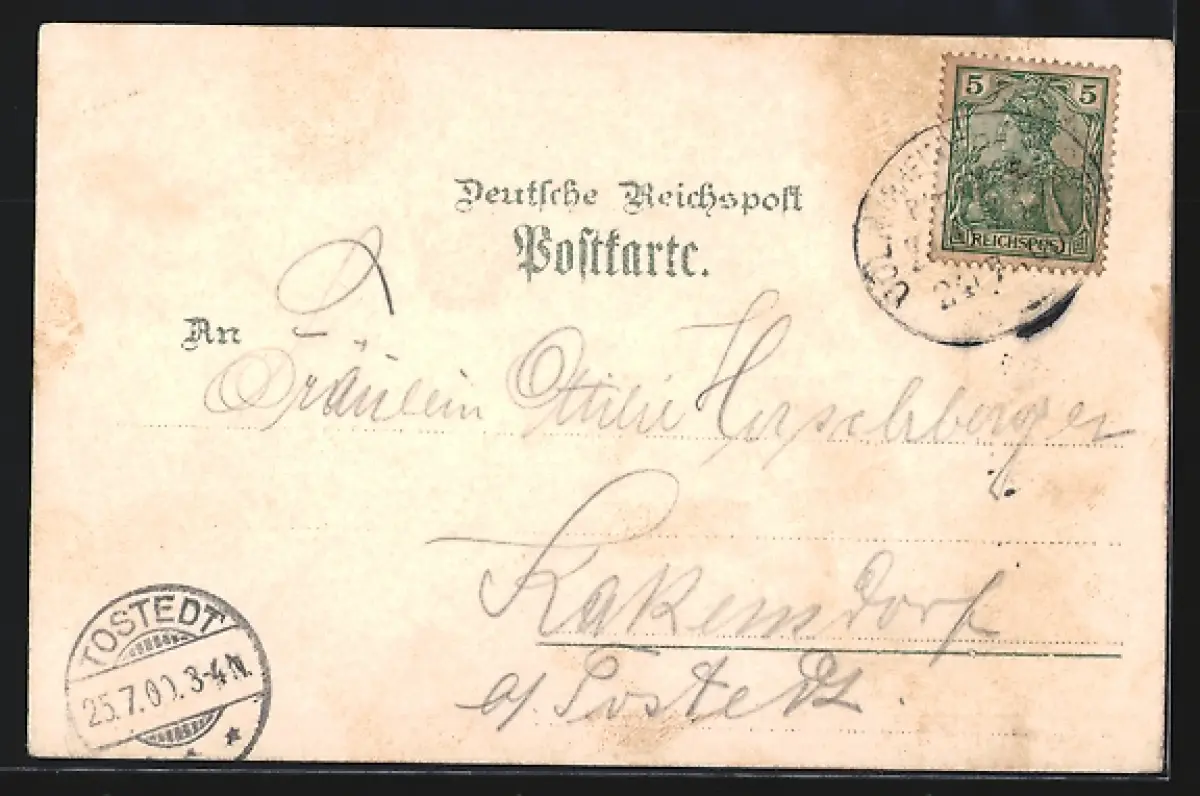 5 5
REICHSPOST
Deutsche Reichspost
Postkarte.
An
Fräulein Ottilie Herschberger
Kakensdorf
a/ Tostedt.
TOSTEDT
25.7.00. 3-4 N.